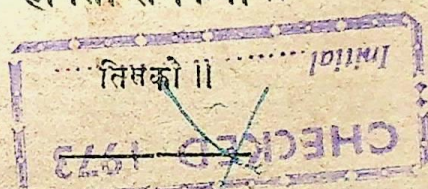 तिसको ॥
Initial ..........
CHECKED 1973